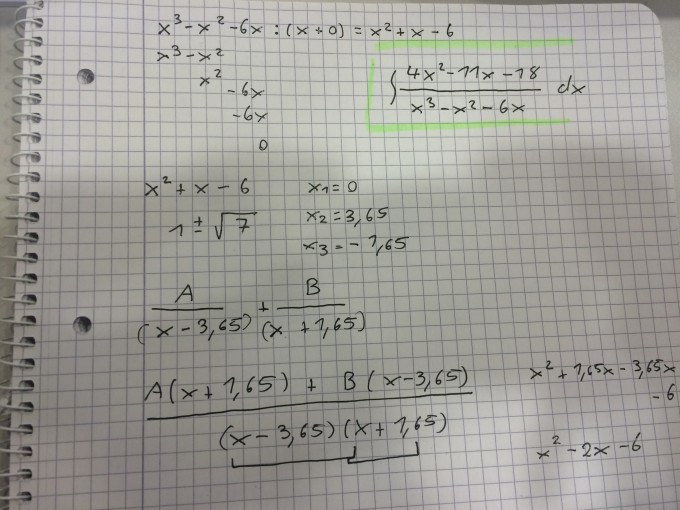 x³ - x² - 6x : (x + 0) = x² + x - 6
x³ - x²
x² - 6x
- 6x
0
∫ (4x² - 11x - 18)/(x³ - x² - 6x) dx
x² + x - 6
1 ± √7
x₁ = 0
x₂ = 3,65
x₃ = - 1,65
A/(x - 3,65) + B/(x + 1,65)
(A(x + 1,65) + B(x - 3,65))/((x - 3,65)(x + 1,65))
x² + 1,65x - 3,65x
- 6
x² - 2x - 6